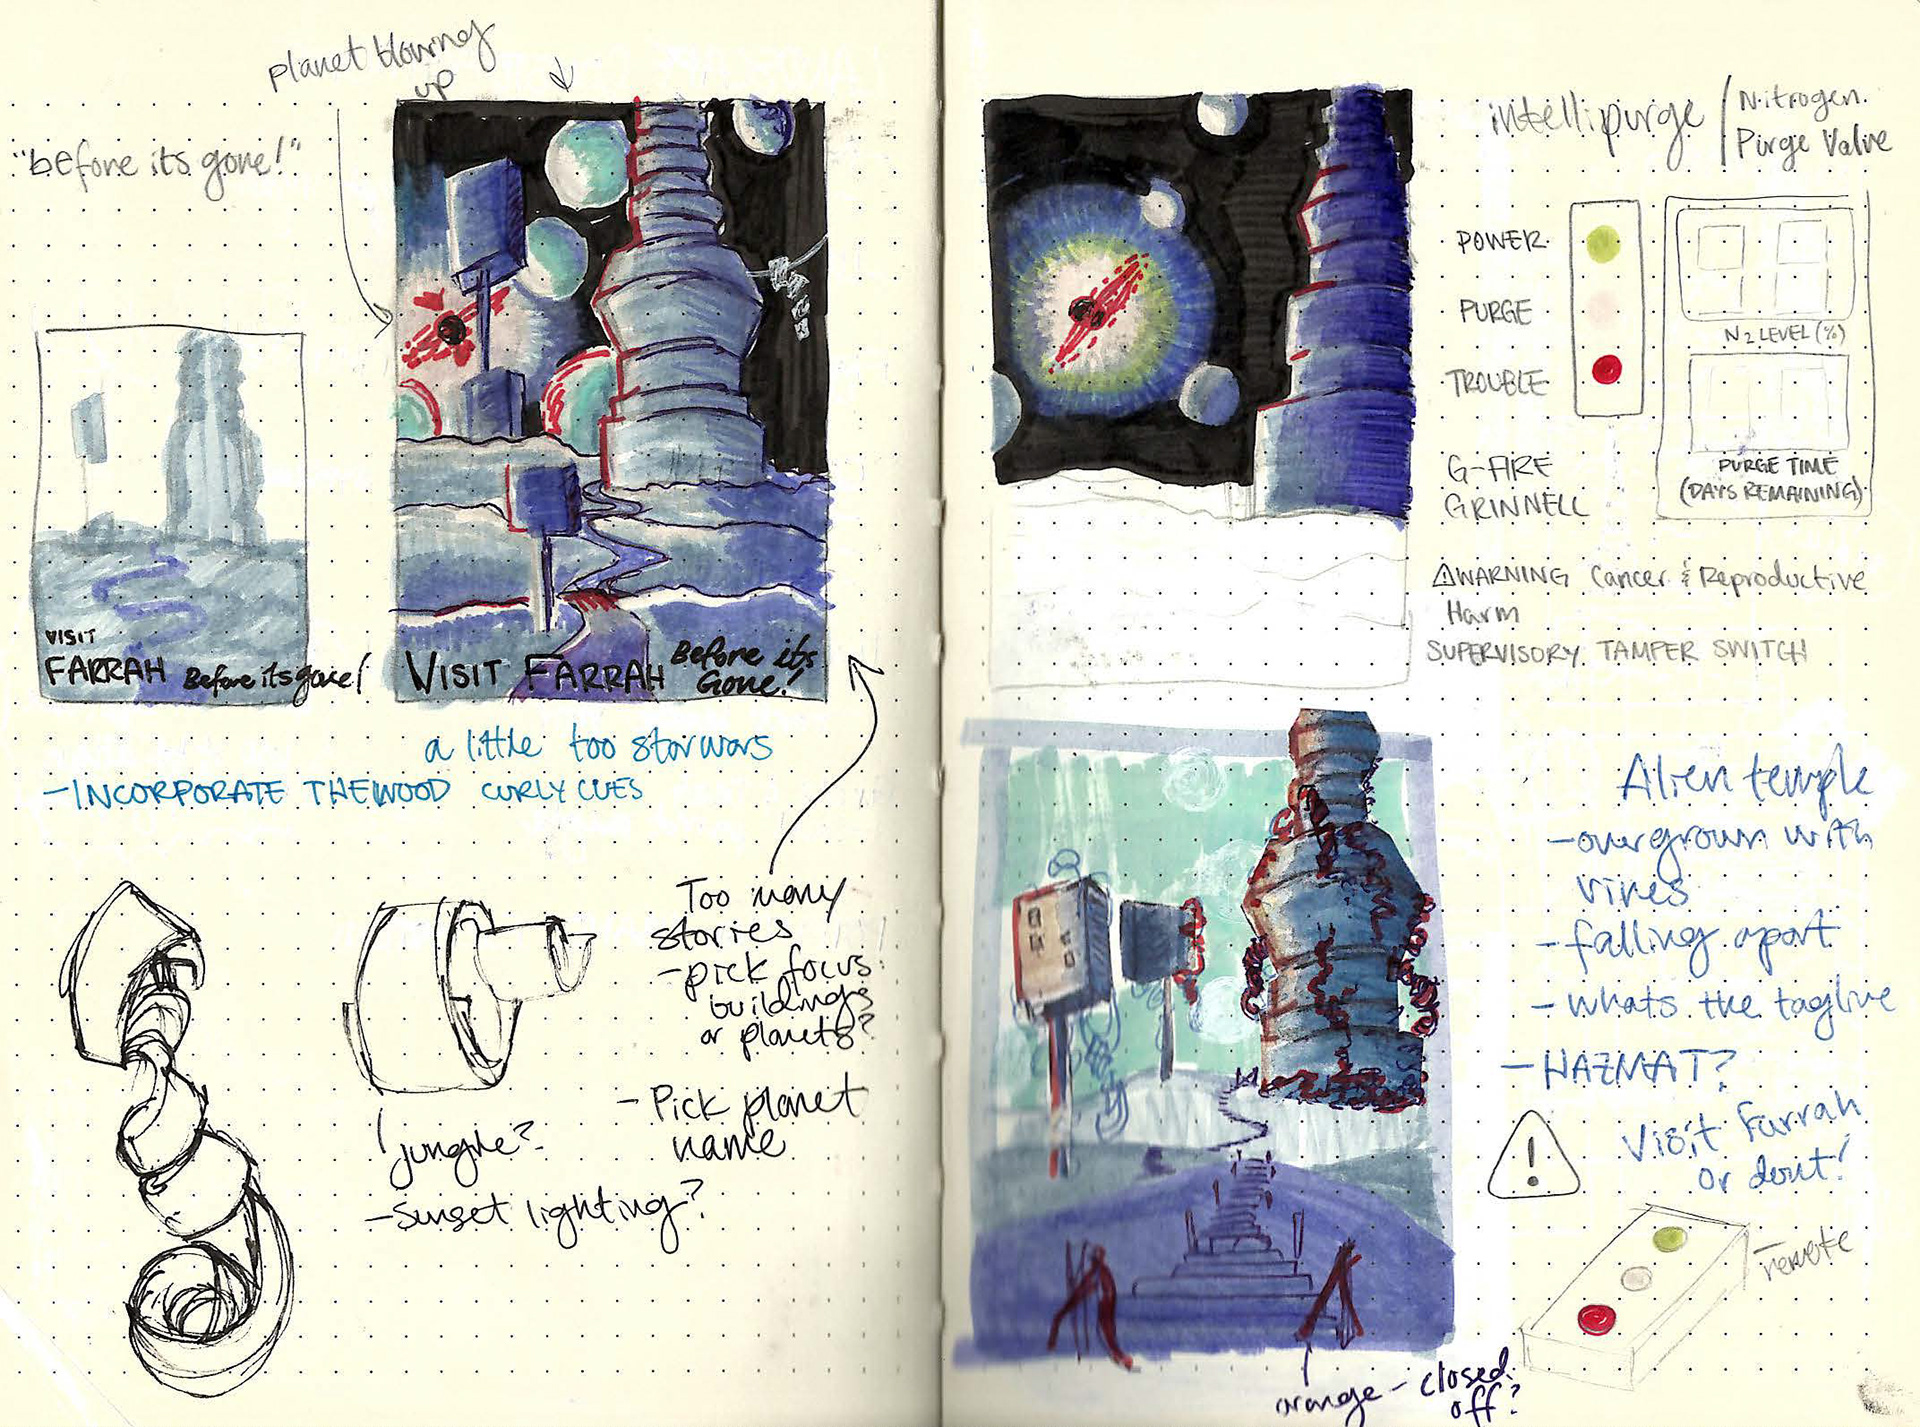 planet blowing
up
"before its gone!"
VISIT
FARRAH Before its gone!
VISIT FARRAH Before its
Gone!
a little too starwars
-INCORPORATE THE WOOD CURLY CUES
Too many
stories
-pick focus:
buildings
or planets?
- Pick planet
name
jungle?
-sunset lighting?
intellipurge / Nitrogen.
Purge Valve
POWER
PURGE
TROUBLE
N2 LEVEL (%)
PURGE TIME
(DAYS REMAINING)
G-FIRE
GRINNELL
⚠WARNING Cancer & Reproductive
Harm
SUPERVISORY TAMPER SWITCH
Alien temple
-overgrown with
vines
- falling apart
- whats the tagline
- HAZMAT?
!
Visit Farrah
or dont!
remote
orange - closed
off?